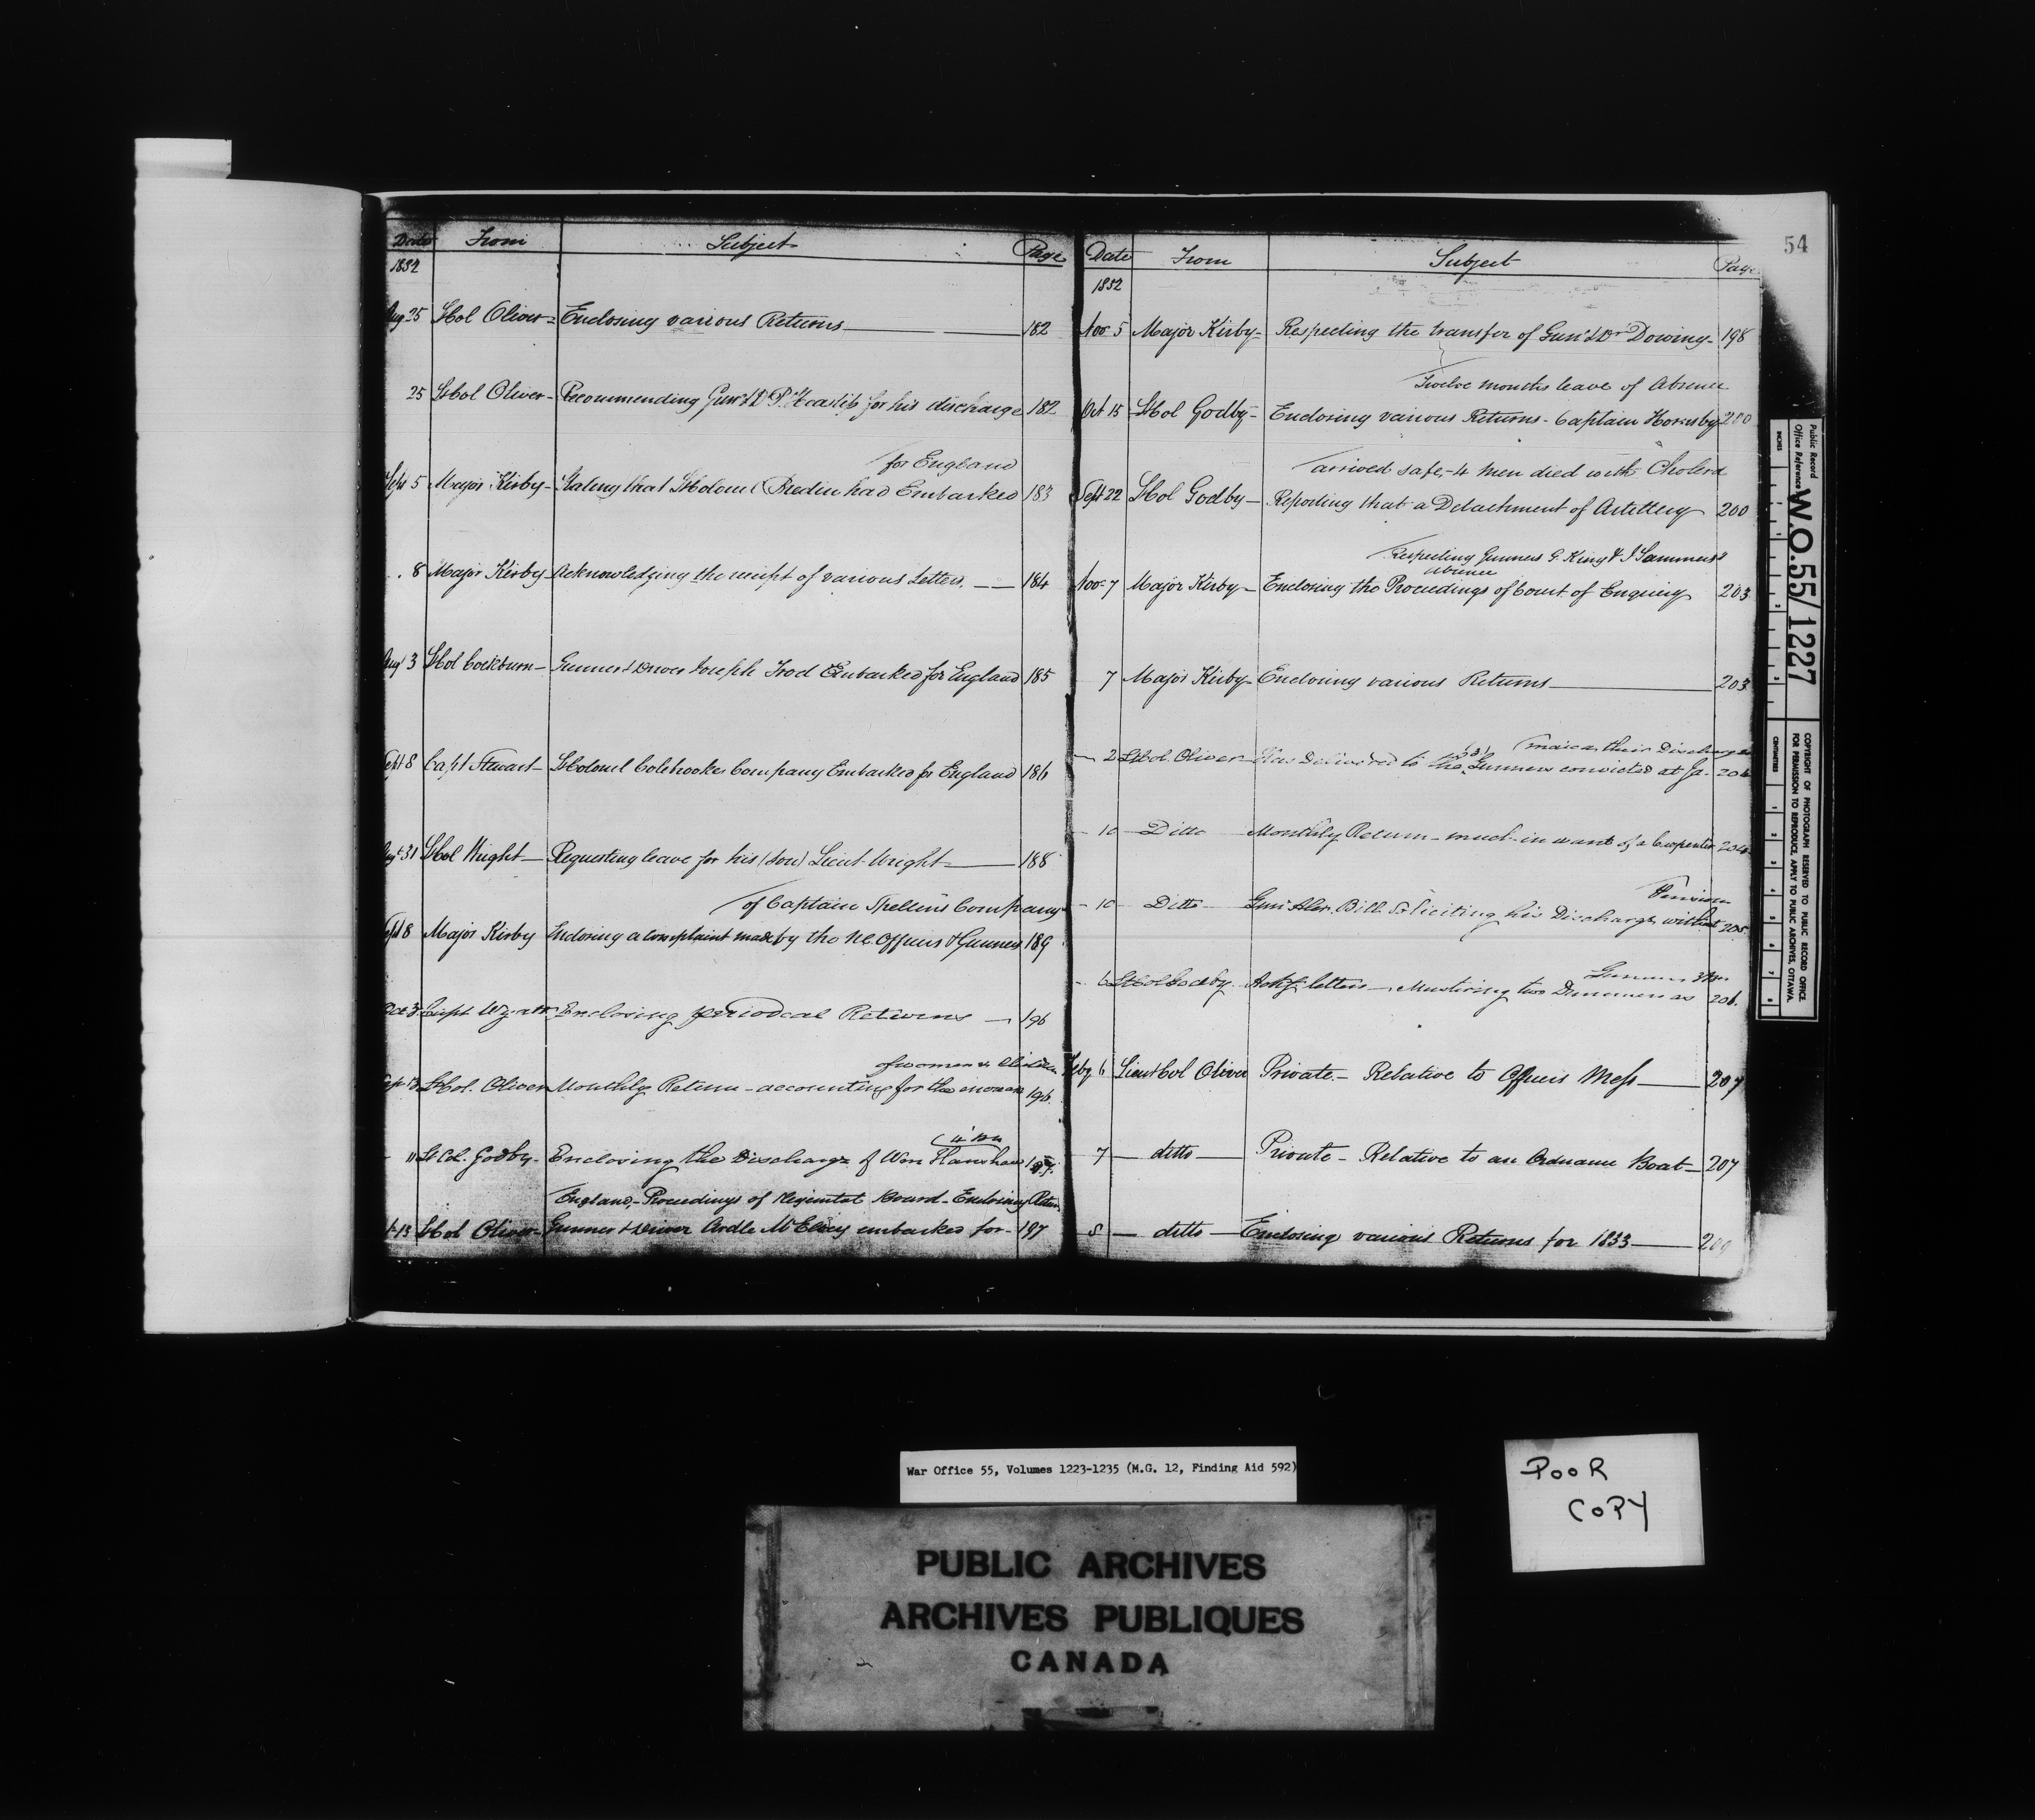 Date From Subject Page
1832
Aug 25 Lt Col Oliver - Enclosing various Returns 182
25 Lt Col Oliver - Recommending Gunr & D P. for his discharge 182
for England
Sept 5 Major Kirby - Stating that Lt Colonel Bredin had Embarked 183
8 Major Kirby - Acknowledging the receipt of various Letters. 184
Augt 3 Lt Col Cockburn - Gunner & Driver Joseph Embarked for England 185
Sept 8 Capt Stewart - Lt Colonel Colebrookes Company Embarked for England 186
Augt 31 Lt Col Wright - Requesting leave for his (son) Lieut Wright 188
of Captain Company
Sept 8 Major Kirby Enclosing a complaint made by the N.C. Officers & Gunners 189
Oct 3 Capt Wyatt Enclosing periodical Returns 196
of women & Children
Sept Lt Col. Oliver Monthly Return - accounting for the increase 196
4 Bn
11 Lt Col. Godby - Enclosing the Discharge of Wm Hanshaw 197
England, - Proceedings of Regimental Board - Enclosing Return
13 Lt Col Oliver - Gunner & Driver Ardle McElvey embarked for - 197
54
Date From Subject Page
1832
Nov 5 Major Kirby - Respecting the transfer of Gunr & Dr Dowing - 198
Twelve months leave of Absence
Oct 15 Lt Col Godby - Enclosing various Returns - Captain Hornsby 200
arrived safe, - 4 Men died with Cholera
Sept 22 Lt Col Godby - Reporting that a Detachment of Artillery 200
Respecting Gunners G King & J Sammers
absence
Nov 7 Major Kirby - Enclosing the Proceedings of Court of Enquiry 203
7 Major Kirby - Enclosing various Returns 203
(3) maica their Discharges
2 Lt Col. Oliver Has Delivered to the Gunners convicted at Ja- 204
10 Ditto Monthly Return - much in want of a Carpenter 204
Pension
10 Ditto Gunr Alexr. Bill Soliciting his Discharge without 205
Gunners 3 Bn
6 Lt Col Godby Ackg letters - Mustering two Drummers as 206.
Feby 6 Lieut Col Oliver Private - Relative to Officers Mess 207
7 ditto Private - Relative to an Ordnance Boat 207
8 ditto Enclosing various Returns for 1833 209
Public Record
Office Reference
W.O.55/1227
COPYRIGHT OF PHOTOGRAPH RESERVED TO PUBLIC RECORD OFFICE
FOR PERMISSION TO REPRODUCE, APPLY TO PUBLIC ARCHIVES, OTTAWA.
INCHES
CENTIMETRES
War Office 55, Volumes 1223-1235 (M.G. 12, Finding Aid 592)
POOR
COPY
PUBLIC ARCHIVES
ARCHIVES PUBLIQUES
CANADA